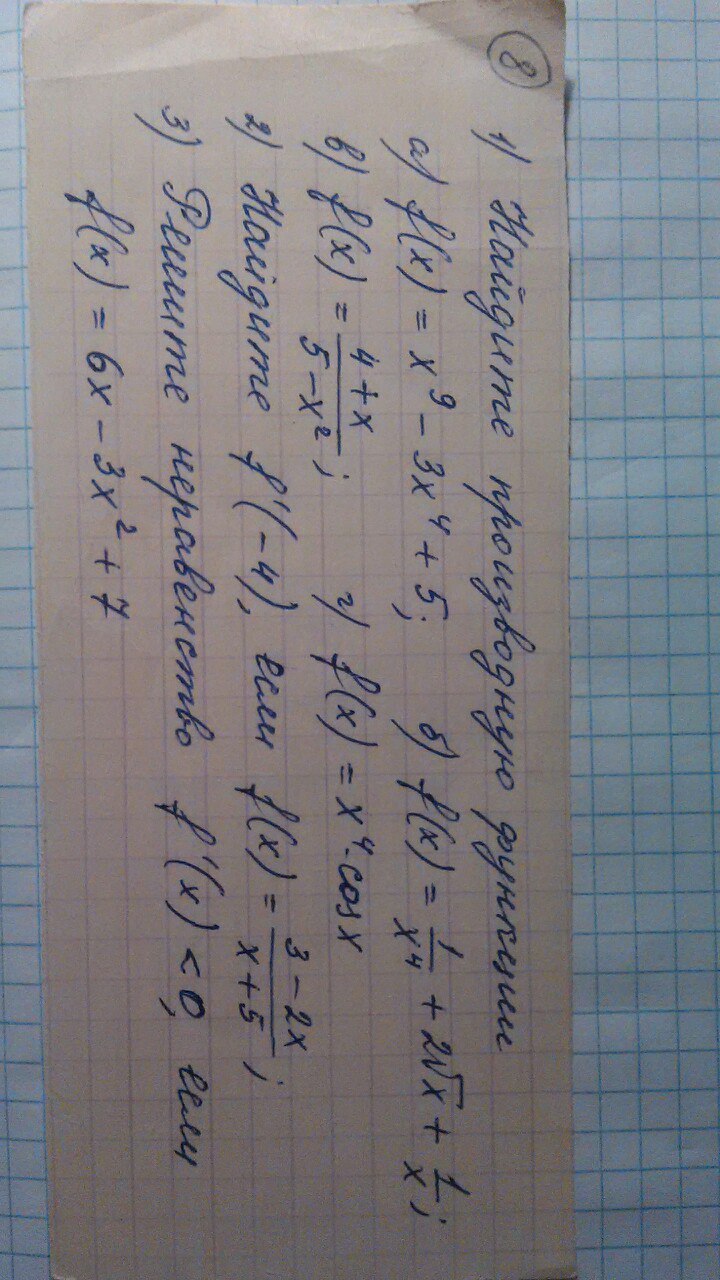 8
1) Найдите производную функции
а) f(x) = x⁹ - 3x⁴ + 5; б) f(x) = 1/x⁴ + 2√x + 1/x;
в) f(x) = (4+x)/(5-x²); г) f(x) = x⁴·cosx
2) Найдите f'(-4), если f(x) = (3-2x)/(x+5);
3) Решите неравенство f'(x) < 0, если
f(x) = 6x - 3x² + 7